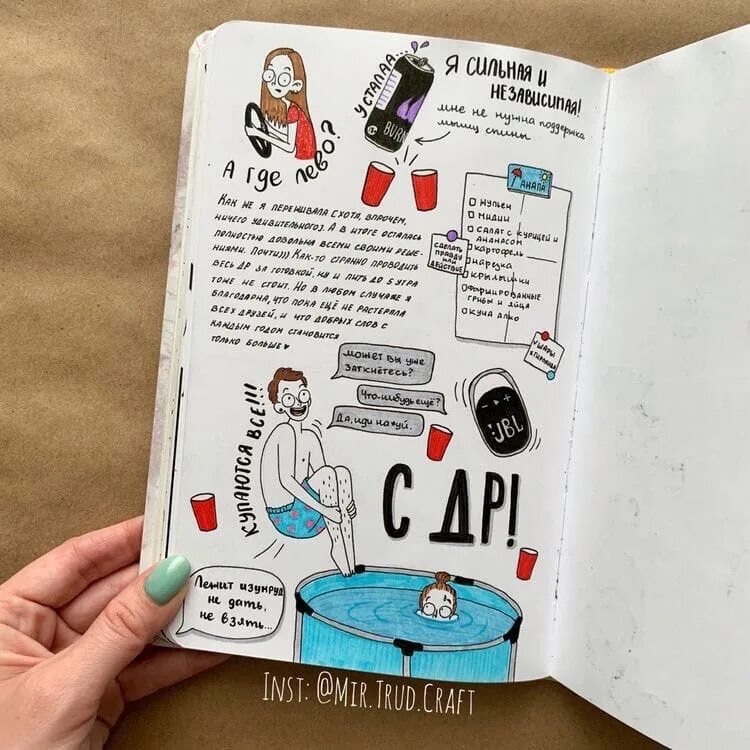 А где лево?
Усталаа...
BURN
Я сильная и
независимая!
мне не нужна поддержка
мышц спины
Как не я переживала (хотя, впрочем,
ничего удивительного). А в итоге осталась
полностью довольна всеми своими реше-
ниями. Почти))) Как-то странно проводить
весь др за готовкой, ну и пить до 5 утра
тоже не стоит. Но в любом случае я
благодарна, что пока ещё не растеряла
всех друзей, и что добрых слов с
каждым годом становится
только больше ♥
АНАПА
нутьен
мидии
салат с курицей и
ананасом
картофель
нарезка
крылышки
фаршированные
грибы и яйца
куча алко
сделать
правду
или
действие
шары
гирлянда
Может вы уже
заткнётесь?
Что-нибудь ещё?
Да, иди на*уй.
JBL
Купаются все!!!
С ДР!
Лежит изумруд
не дать,
не взять...
Inst: @Mir.Trud.Craft